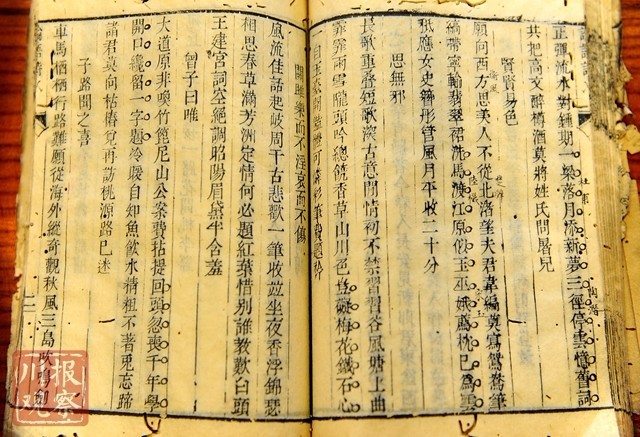 正彈流水對鍾期一榘落月添新夢三徑停雲憶舊詞
共把高文醉樽酒莫將姓氏問屠兒
賢賢易色
願向西方思美人不從北洛望夫君韋編莫寫鴛鴦筆
縞帶寧輸翡翠裙洗馬渡江原似玉巫娥薦枕已為雲
秪應女史簪彤管風月平收二十分
思無邪
長歌重疊短歌深古意閒情初不禁習習谷風塘上曲
霏霏雨雪隴頭吟總饒香草山川色豈礙梅花鐵石心
關雎樂而不淫哀而不傷
風流佳話起岐周千古悲歡一筆收並坐夜香浮錦瑟
相思春草滿芳洲定情何必題紅葉惜別誰教歎白頭
王建宮詞空絕調昭陽眉黛半含羞
曾子曰唯
大道原非喚竹篦尼山公案費拈提回頭忽喪千年學
開口纔留一字題冷暖自知魚飲水精粗不著兎忘蹄
諸君莫向枯椿覓再訪桃源路已迷
子路聞之喜
車馬栖栖行路難願從海外縱奇觀秋風三島
川报
观察